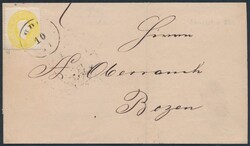 10
Herrn
A. Oberrauch
Bozen